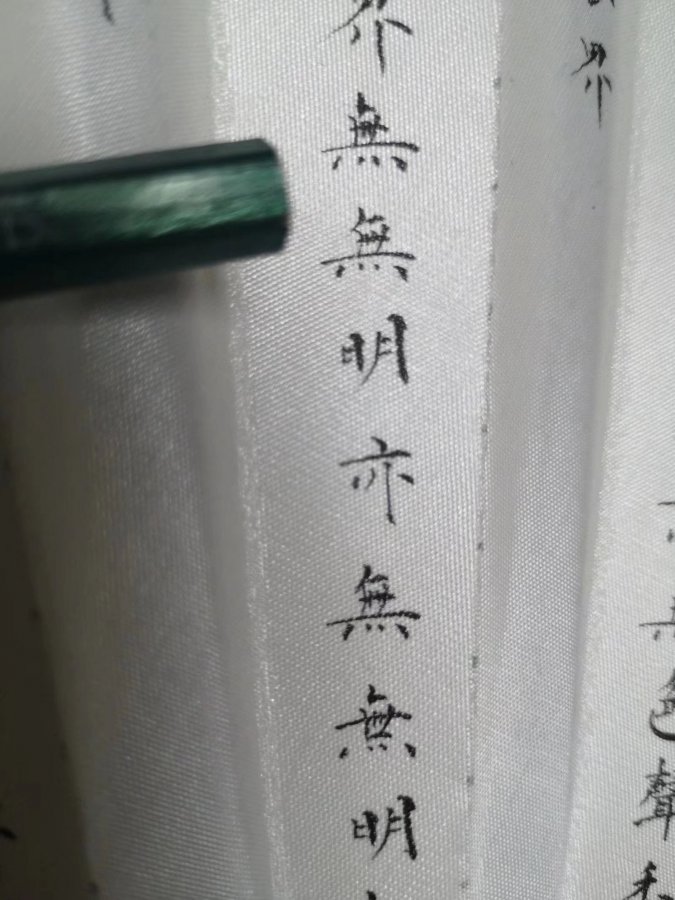 界
無色聲
界無無明亦無無明